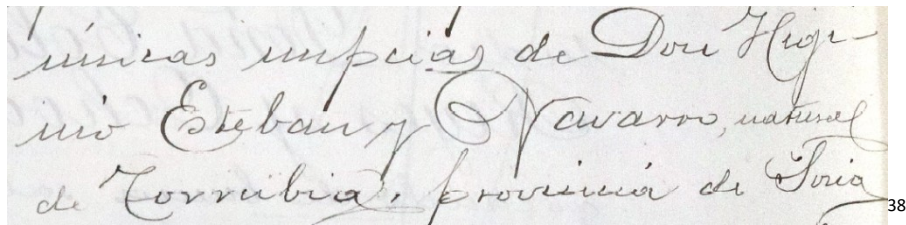 únicas nupcias de Don Higi-
nio Esteban y Navarro, natural
de Torrubia, provincia de Soria
38